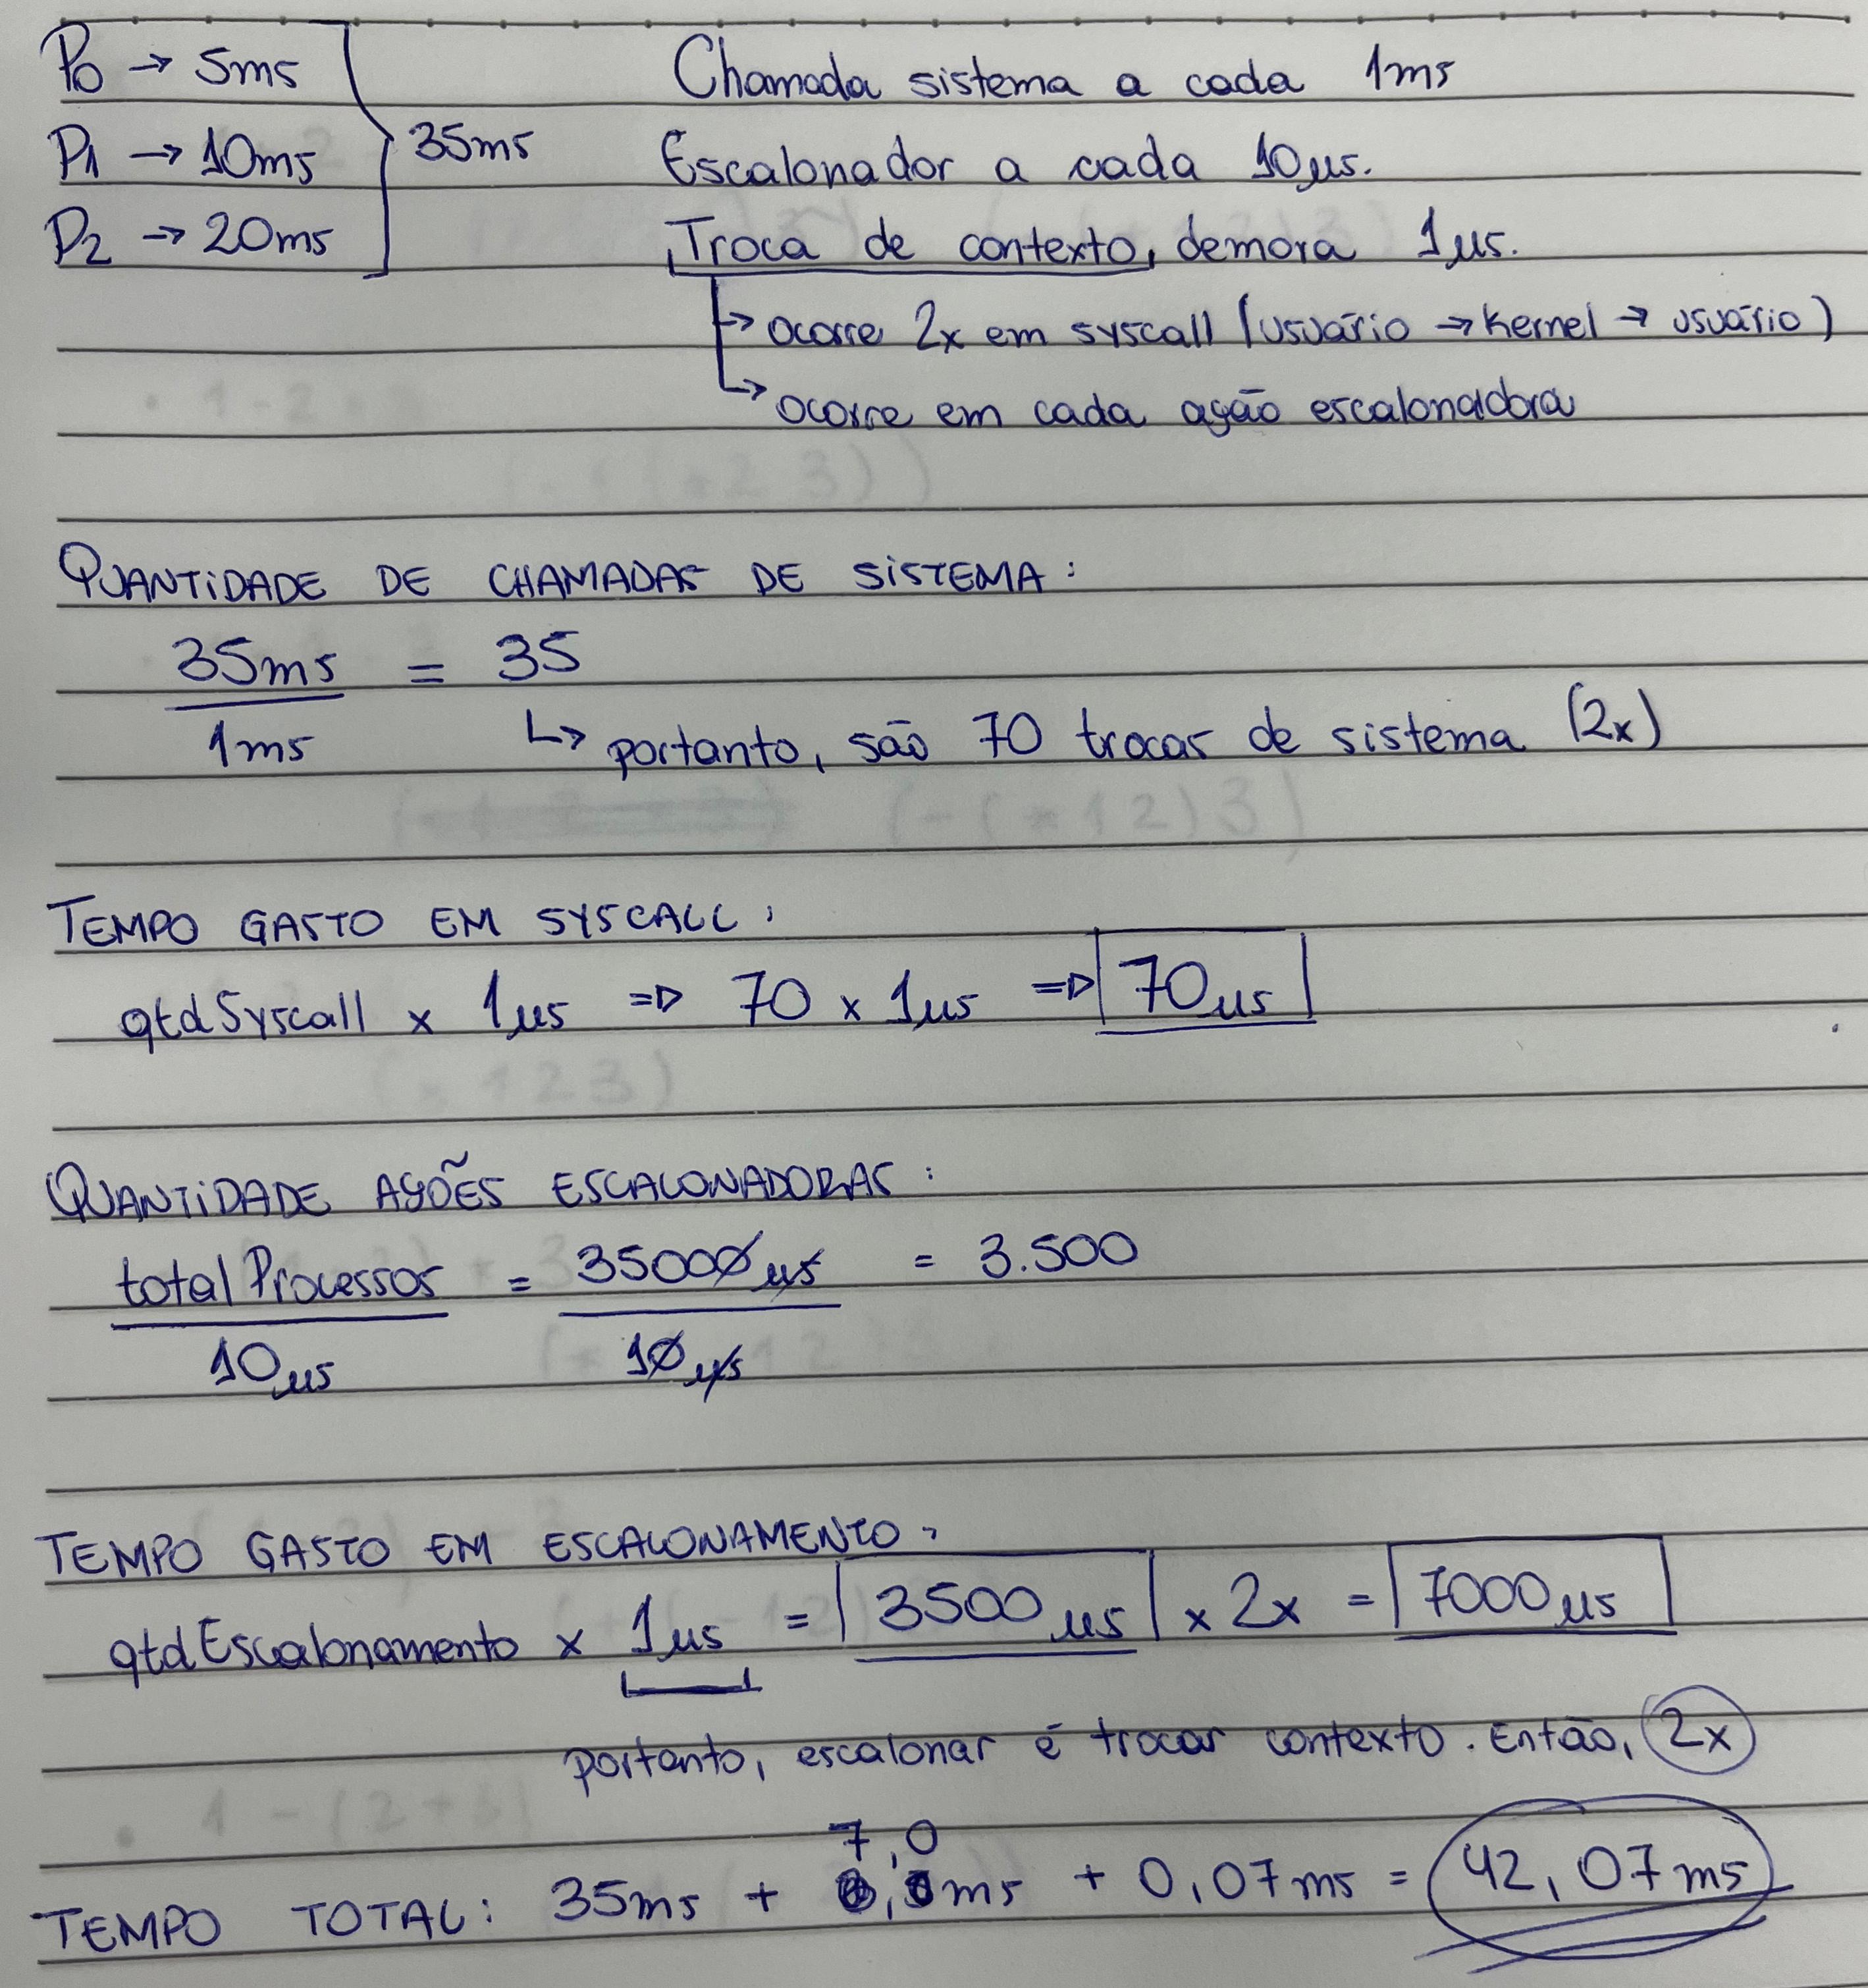 P0 → 5ms
P1 → 10ms
P2 → 20ms
35ms
Chamada sistema a cada 1ms
Escalonador a cada 10µs.
Troca de contexto, demora 1µs.
↳ ocorre 2x em syscall (usuário → kernel → usuário)
↳ ocorre em cada ação escalonadora
QUANTIDADE DE CHAMADAS DE SISTEMA:
35ms = 35
1ms
↳ portanto, são 70 trocas de sistema (2x)
TEMPO GASTO EM SYSCALL:
qtdSyscall x 1µs ⇒ 70 x 1µs ⇒ 70µs
QUANTIDADE AÇÕES ESCALONADORAS:
total Processos = 35000µs = 3.500
10µs 10µs
TEMPO GASTO EM ESCALONAMENTO:
qtdEscalonamento x 1µs = 3500µs x 2x = 7000µs
portanto, escalonar é trocar contexto. Então, 2x
7,0
TEMPO TOTAL: 35ms + ms + 0,07ms = 42,07ms